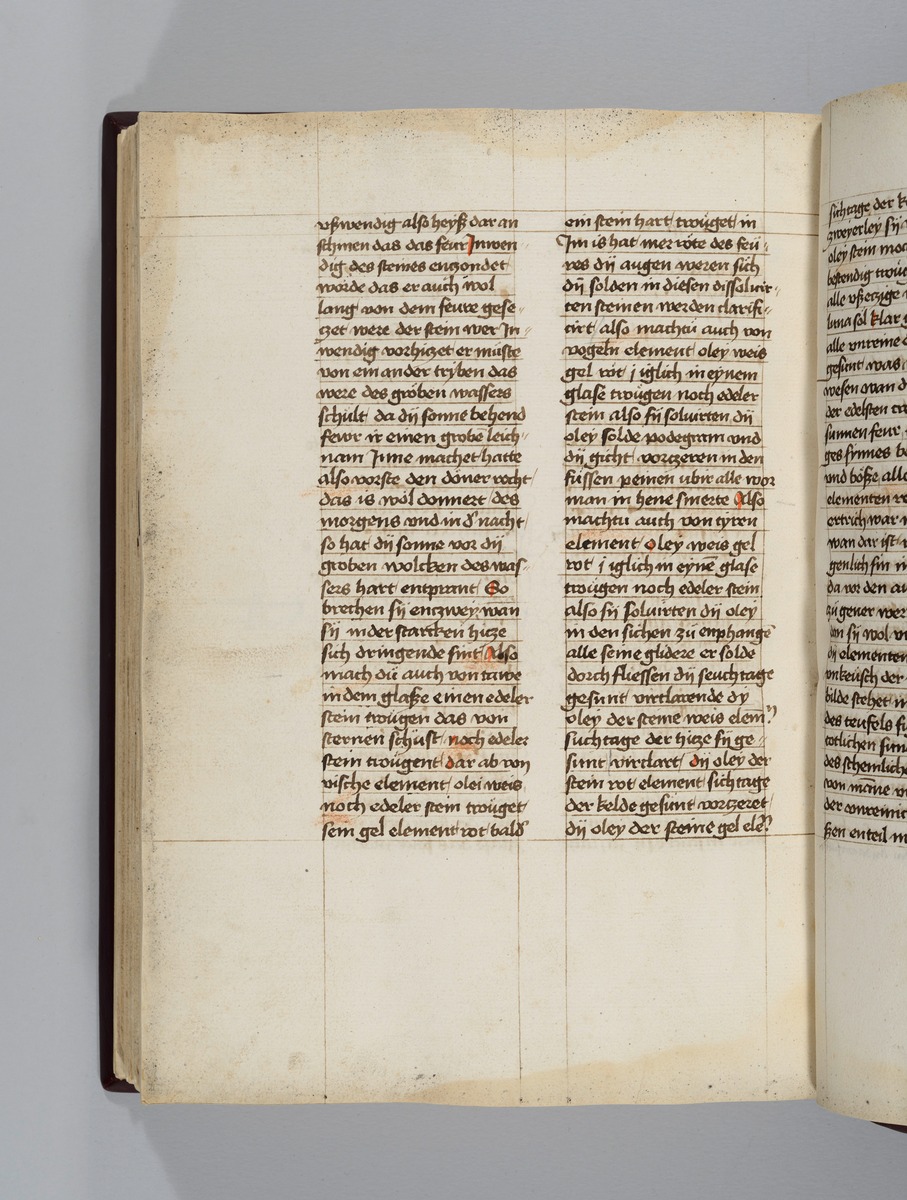 vßwendig also heyß dar an
schinen das das feur Inwen-
dig des steines enczondet
worde das er auch wol
lang von dem feure gese-
czet were der stein wer In-
wendig vorhiczet er müste
von ein ander tryben das
were des gröben wassers
schult da dij sonne behend
fewr ir einen grobē leich-
nam Inne machet hatte
also vorste den döner recht
das is wol donnert des
morgens vnd in d' nacht
so hat dij sonne vor dij
groben wolcken des was-
sers hart entprant So
brechen sij enczwey wan
sij in der starcken hicze
sich dringende sint Also
mach du auch von tawe
in dem glaße einen edeler
stein trougen das von
sternen schust noch edeler
stein trougent dar ab von
rische element olei weis
noch edeler stein trouget
sein gel element rot bald'
ein stein hart trouget in
Im is hat mer röte des feü-
res dij augen weren sich
dij solden in diesen dissoluir-
ten steinen werden clarifi-
cirt also machtu auch von
vogeln element oley weis
gel rot j iglich in eynem
glase trougen noch edeler
stein also sij soluirten dij
oley solde podegram vnd
dij gicht vorczeren in den
füssen peinen vbir alle wor
man in hene smerte Also
machtu auch von tyren
element oley weis gel
rot j iglich in eynē glase
trougen noch edeler stein
also sij soluirten dij oley
in den sichen zü enphangē
alle seine glidere er solde
dorch fliessen dij seuchtage
gesunt virclarende dy
oley der steine weis elem̄
suchtage der hicze sij ge-
sunt virclart dij oley der
stein rot element sichtage
der kelde gesunt vorczeret
dij oley der steine gel ele
sichtage der
zweyerley sij
oley stein
bestendig
alle vßeczige
luna sol klar
alle vnreine
gesunt was
wesen wan
der edelsten
sunnen feur
ges sinnes
vnd böße alle
elementen
ertrich war
wan dar ist
genlich sin
da vor den
zü gener
sij wol
dij elementen
vnkeusch der
bilde stehet
des teufels
totlichen
des schemliche
von māne
der
ßen enteil